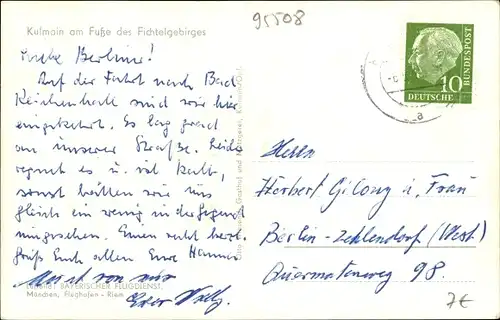 95508
Kulmain am Fuße des Fichtelgebirges
Liebe Berliner!
Auf der Fahrt nach Bad
Reichenhall sind wir hier
eingekehrt. Es lag grad
an unserer Straße. Leider
regnet es u. ist kalt,
sonst hätten wir uns
gleich ein wenig in der Gegend
umgesehen. Einen recht herzl.
Gruß Euch allen Eure Hanna
auch von mir
Euer
BAYERISCHER FLUGDIENST,
München, Flughafen - Riem
10
DEUTSCHE
BUNDESPOST
Herrn
Herbert Gilony u. Frau
Berlin-Zehlendorf (West)
98.
7€